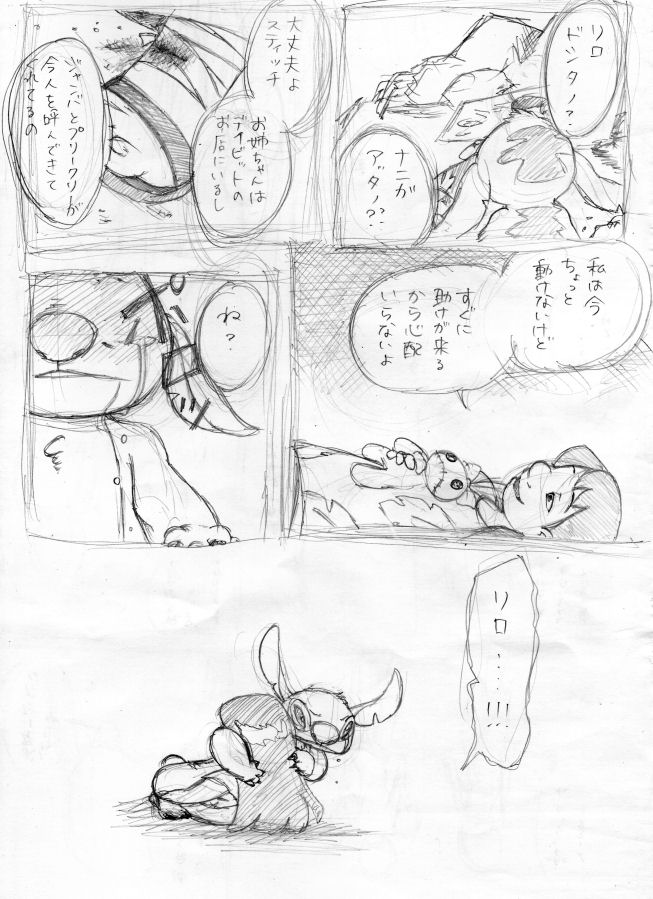 リロ
ドシタノ?
ナニガ
アッタノ??
大丈夫よ
スティッチ
お姉ちゃんは
デイビットの
お店にいるし
ジャンバとプリークリーが
今人を呼んできて
くれてるの
私は今
ちょっと
動けないけど
すぐに
助けが来る
から心配
いらないよ
ね?
リロ・・・・!!!